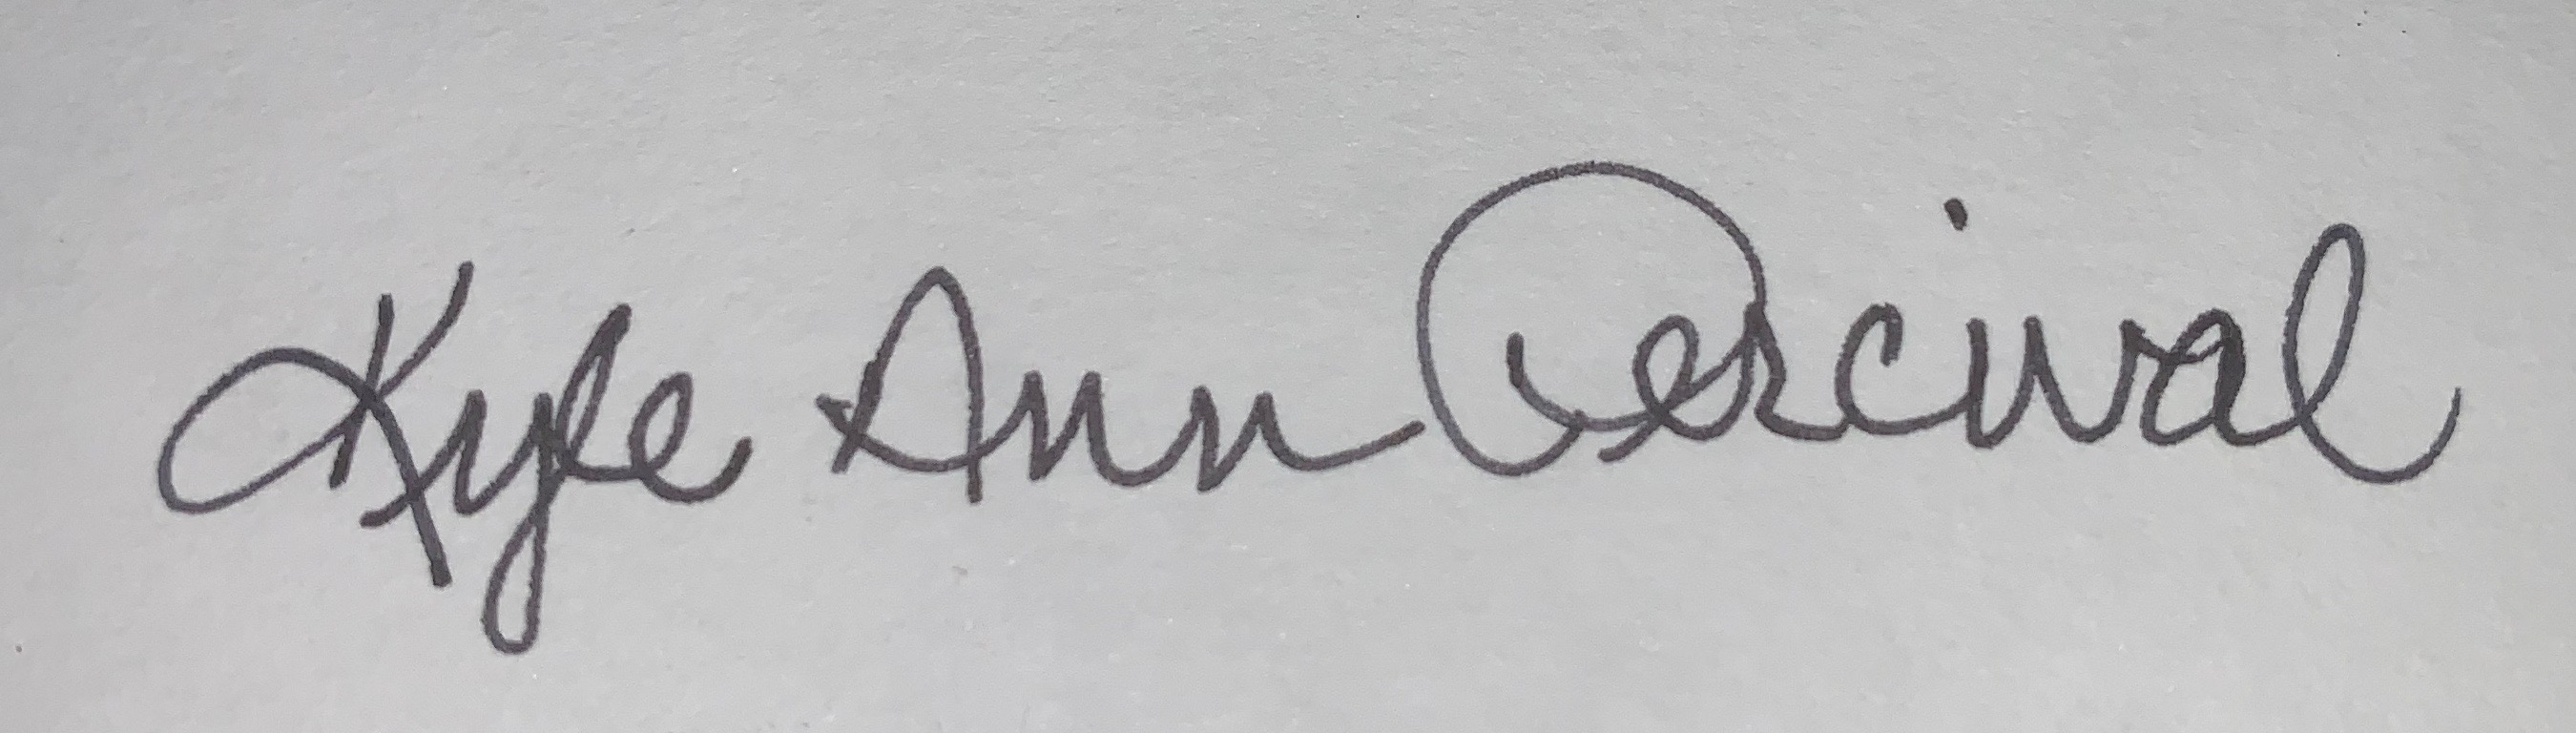 Kyle Ann Percival